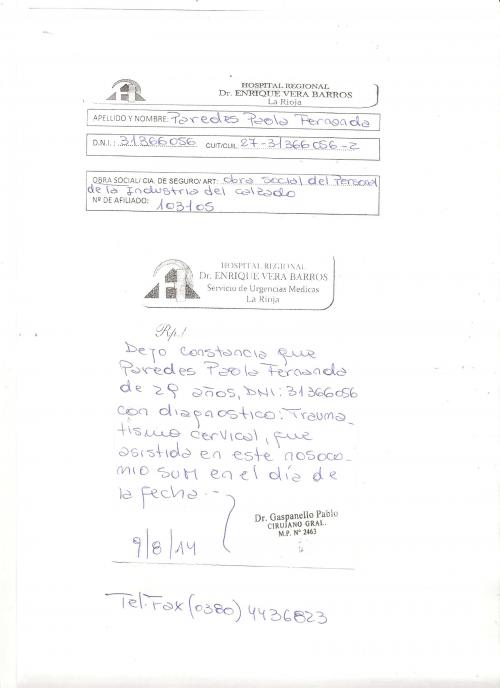 HOSPITAL REGIONAL
Dr. ENRIQUE VERA BARROS
La Rioja
APELLIDO Y NOMBRE: Paredes Paola Fernanda
D.N.I.: 31366056 CUIT/CUIL 27-31366056-2
OBRA SOCIAL/ CIA. DE SEGURO/ ART: obra social del Personal
de la Industria del calzado
Nº DE AFILIADO: 103105
HOSPITAL REGIONAL
Dr. ENRIQUE VERA BARROS
Servicio de Urgencias Medicas
La Rioja
Rp./
Dejo constancia que
Paredes Paola Fernanda
de 29 años, DNI: 31366056
con diagnostico: Trauma_
tismo cervical, fue
asistida en este nosoco_
mio SUM en el día de
la fecha.-
Dr. Gaspanello Pablo
CIRUJANO GRAL.
M.P. Nº 2463
9/8/14
Tel-Fax (0380) 4436823